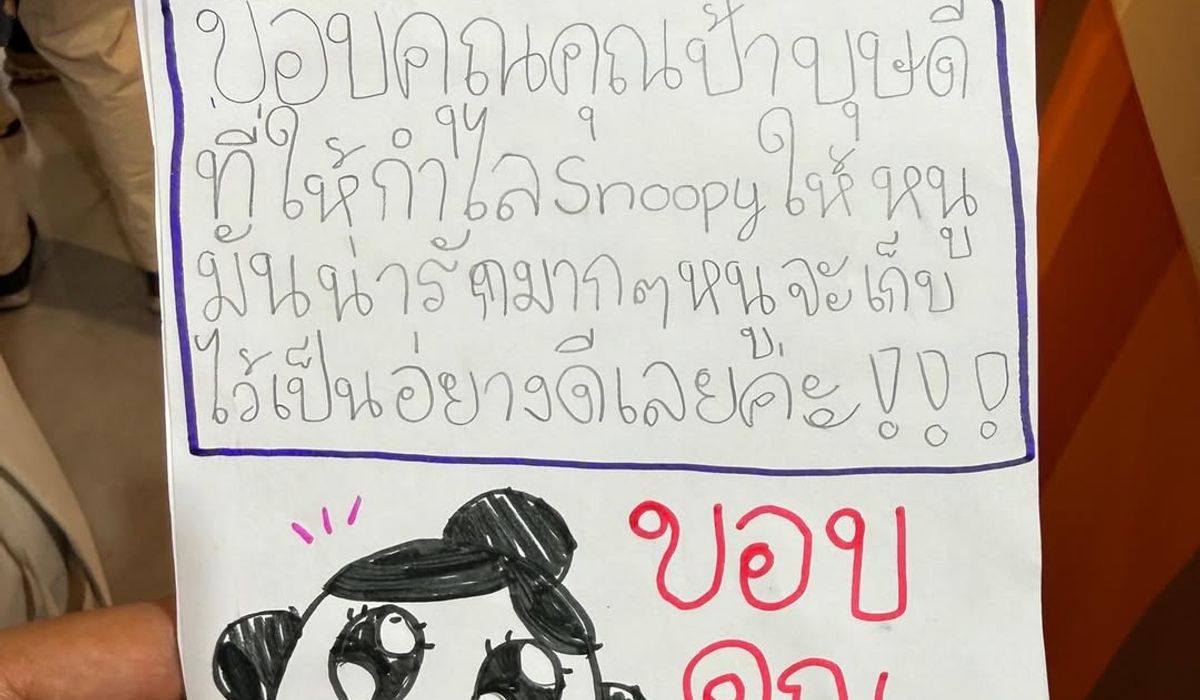 ขอบคุณคุณป้าบุษดี
ที่ให้กำไล Snoopy ให้หนู
มันน่ารักมากๆหนูจะเก็บ
ไว้เป็นอย่างดีเลยค่ะ!!!
ขอบ
คุณ